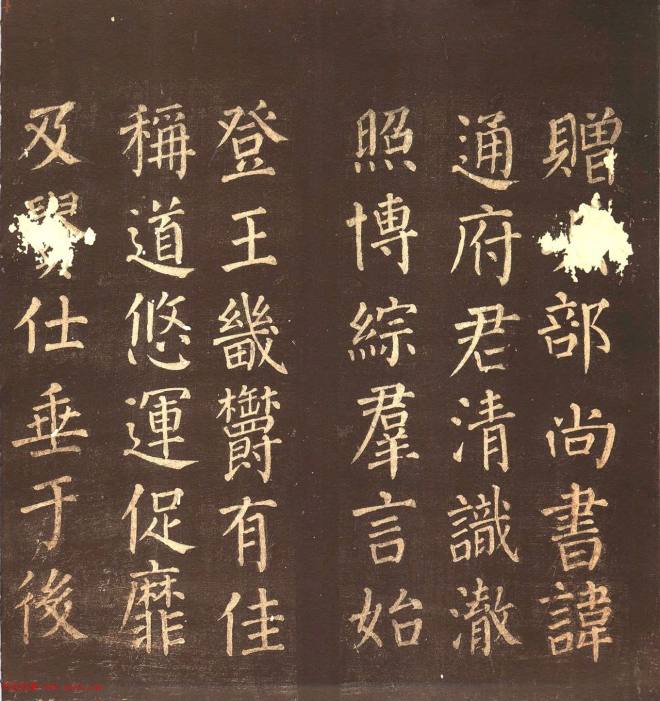 贈部尚書諱
通府君清識澈
照博綜羣言始
登王畿欝有佳
稱道悠運促靡
及仕垂于後